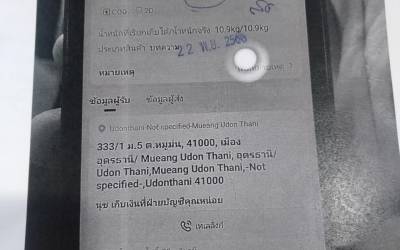 COD
น้ำหนักที่เรียกเก็บได้/น้ำหนักจริง 10.9kg/10.9kg
ประเภทสินค้า บทความ
22 พ.ย. 2566
หมายเหตุ
ข้อมูลผู้รับ ข้อมูลผู้ส่ง
Udonthani-Not specified-Mueang Udon Thani
333/1 ม.5 ต.หมูม่น, 41000, เมือง
อุดรธานี/ Mueang Udon Thani, อุดรธานี/
Udon Thani,Mueang Udon Thani,-Not
specified-,Udonthani 41000
นุช เก็บเงินที่ฝ่ายบัญชีคุณหน่อย